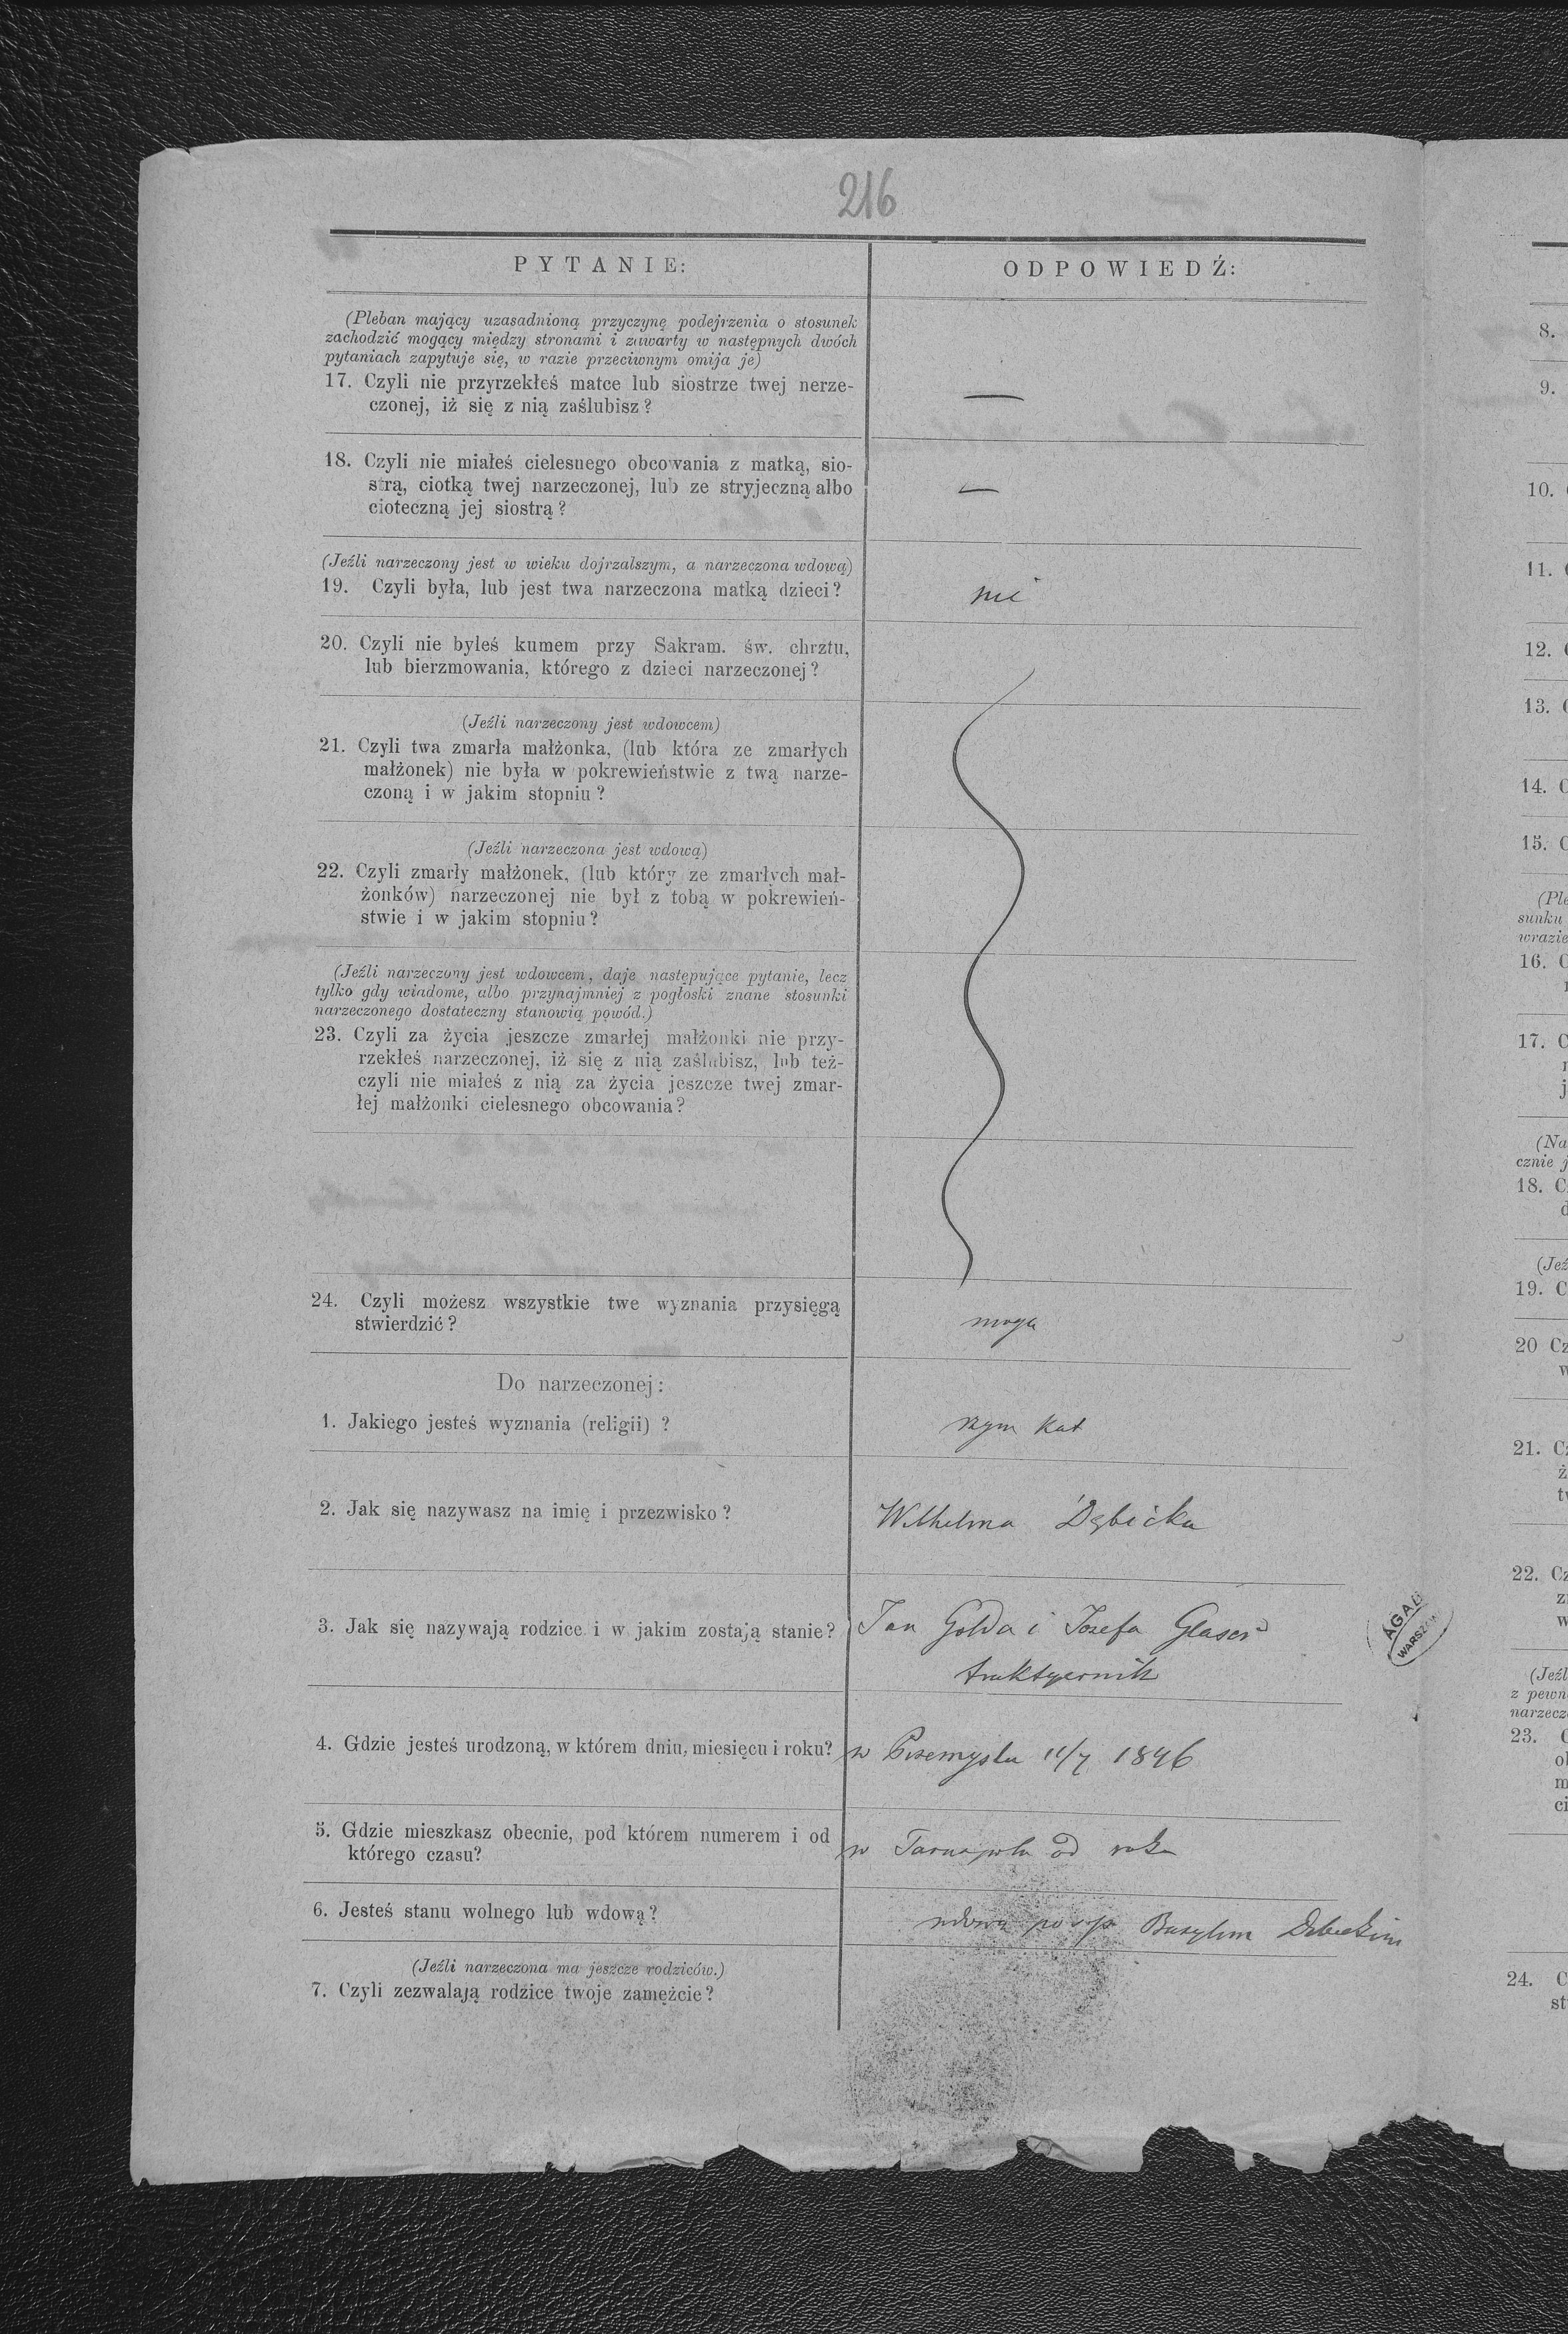 216
PYTANIE:
ODPOWIEDŹ:
(Pleban mający uzasadnioną przyczynę podejrzenia o stosunek
zachodzić mogący między stronami i zawarty w następnych dwóch
pytaniach zapytuje się, w razie przeciwnym omija je)
17. Czyli nie przyrzekłeś matce lub siostrze twej nerze-
czonej, iż się z nią zaślubisz?
—
18. Czyli nie miałeś cielesnego obcowania z matką, sio-
strą, ciotką twej narzeczonej, lub ze stryjeczną albo
cioteczną jej siostrą?
—
(Jeźli narzeczony jest w wieku dojrzalszym, a narzeczona wdową)
19. Czyli była, lub jest twa narzeczona matką dzieci?
nie
20. Czyli nie byłeś kumem przy Sakram. św. chrztu,
lub bierzmowania, którego z dzieci narzeczonej?
(Jeźli narzeczony jest wdowcem)
21. Czyli twa zmarła małżonka, (lub która ze zmarłych
małżonek) nie była w pokrewieństwie z twą narze-
czoną i w jakim stopniu?
(Jeźli narzeczona jest wdową)
22. Czyli zmarły małżonek, (lub który ze zmarłych mał-
żonków) narzeczonej nie był z tobą w pokrewień-
stwie i w jakim stopniu?
(Jeźli narzeczony jest wdowcem, daje następujące pytanie, lecz
tylko gdy wiadome, albo przynajmniej z pogłoski znane stosunki
narzeczonego dostateczny stanowią powód.)
23. Czyli za życia jeszcze zmarłej małżonki nie przy-
rzekłeś narzeczonej, iż się z nią zaślubisz, lub też-
czyli nie miałeś z nią za życia jeszcze twej zmar-
łej małżonki cielesnego obcowania?
24. Czyli możesz wszystkie twe wyznania przysięgą
stwierdzić?
moga
Do narzeczonej:
1. Jakiego jesteś wyznania (religii) ?
rzym kat
2. Jak się nazywasz na imię i przezwisko?
Wilhelmina Dębicka
3. Jak się nazywają rodzice i w jakim zostają stanie?
Jan Golda i Józefa Glaser
traktyernik
4. Gdzie jesteś urodzoną, w którem dniu, miesięcu i roku?
w Przemyslu 11/7 1846
5. Gdzie mieszkasz obecnie, pod którem numerem i od
którego czasu?
w Tarnopolu od roku
6. Jesteś stanu wolnego lub wdową?
wdowa po ś.p. Bazylim Dębickim
(Jeźli narzeczona ma jeszcze rodziców.)
7. Czyli zezwalają rodzice twoje zamężcie?
AGAD
WARSZAWA
8.
9.
10.
11.
12.
13.
14. C
15. C
(Ple
sunku
wrazie
16. C
17. C
j
(Na
cznie j
18. C
d
(Jeź
19. C
20 Cz
w
21. Cz
ż
tw
22. Cz
z
w
(Jeźl
z pewn
narzecz
23. C
ol
m
ci
24. C
st